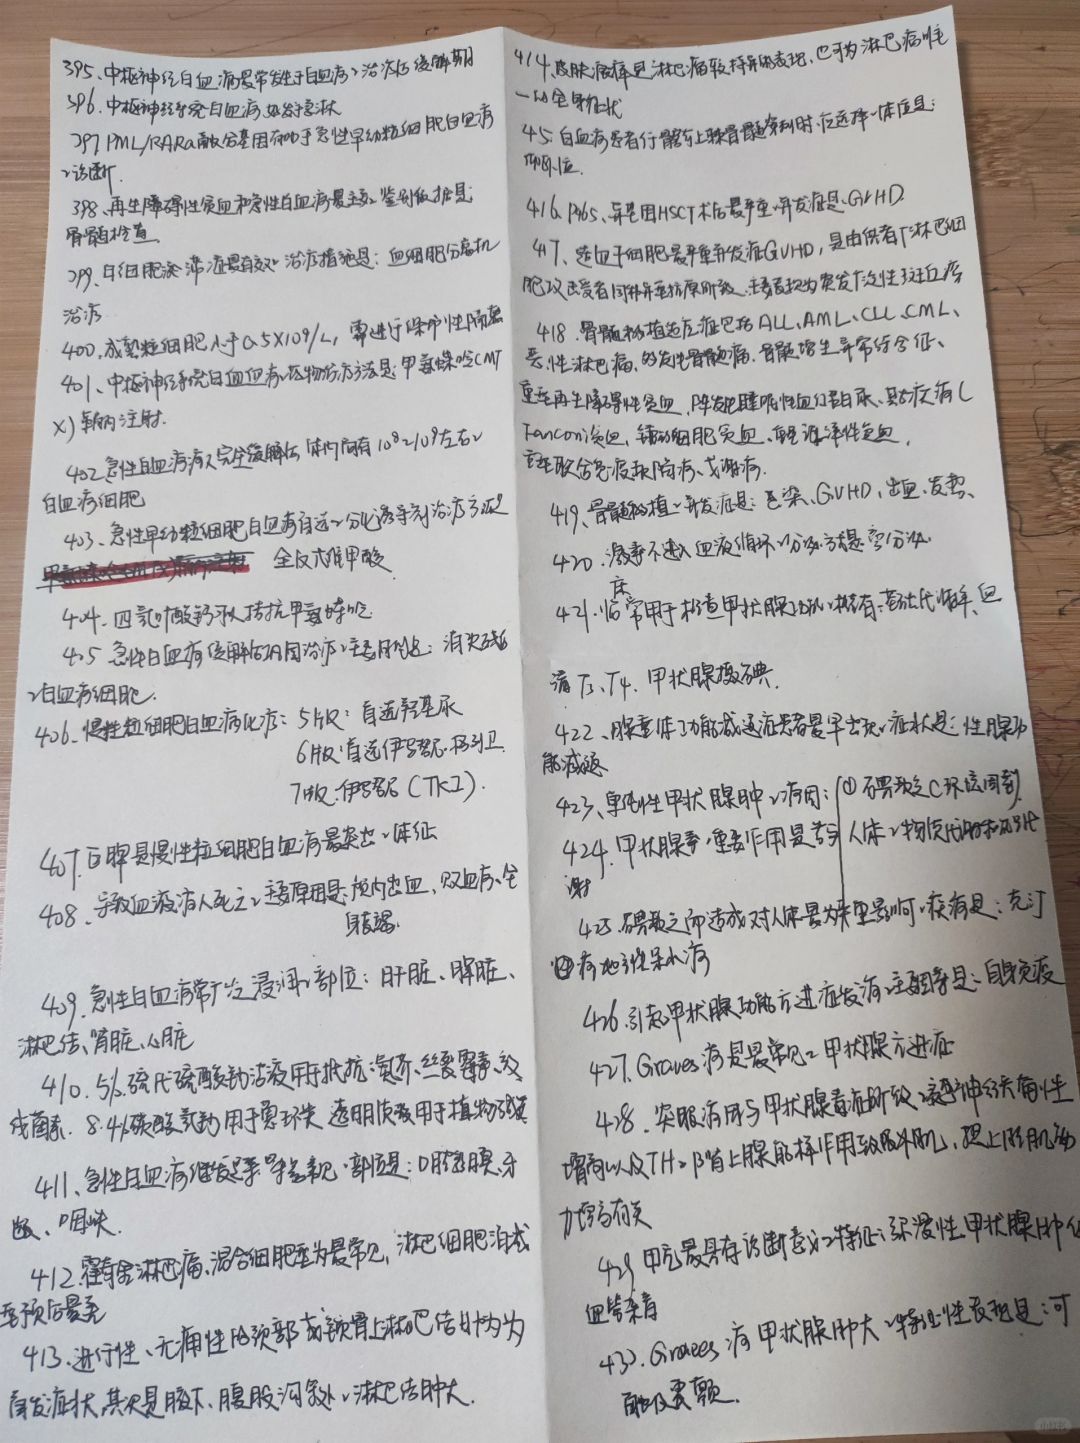 395、中枢神经白血病最常发生于白血病、治疗后缓解期
396、中枢神经系统白血病
397 PML/RARa融合基因有助于急性早幼粒细胞白血病
、诊断
398、再生障碍性贫血和急性白血病最主要、鉴别依据是:
骨髓检查
399、白细胞淤滞症最有效、治疗措施是:血细胞分离机
治疗
400、成熟粒细胞小于0.5X109/L,需进行保护性隔离
401、中枢神经系统白血病、药物治疗方法是:甲氨蝶呤(MT
X)鞘内注射.
402 急性白血病病人完全缓解后体内尚有10⁸~10⁹左右、
白血病细胞
403、急性早幼粒细胞白血病首选、分化诱导剂治疗方
全反式维甲酸
404、四氢叶酸钙 拮抗甲氨蝶呤
405 急性白血病缓解后巩固治疗、主要目的是:消灭残存
、白血病细胞.
406、慢性粒细胞白血病化疗:5版:首选羟基脲
6版:首选伊马替尼、格列卫
7版.伊马替尼(TKI).
407.巨脾是慢性粒细胞白血病最突出、体征
408、导致血液病人死亡、主要原因是:颅内出血、败血病、全
身衰竭.
409、急性白血病常广泛浸润、部位:肝脏、脾脏、
淋巴结、肾脏、心脏
410.5%硫代硫酸钠溶液用于抵抗氮芥、丝裂霉素、放
线菌素.8.4%碳酸氢钠用于 透明质酸用于植物
411、急性白血病继发 部位是:口腔黏膜、牙
龈、咽峡.
412.霍奇金淋巴瘤、混合细胞型为最常见,淋巴细胞消减
型预后最差
413、进行性、无痛性的颈部或锁骨上淋巴结肿大为
首发症状,其次是腋下、腹股沟等处、淋巴结肿大.
414、皮肤瘙痒是淋巴瘤较特异的表现,也可为淋巴瘤唯
一的全身症状
45、白血病患者行髂前上棘骨髓穿刺时,应选择、体位是:
仰卧位.
416、P465、异 HSCT术后最严重、并发症是、GVHD.
417、造血干细胞最严重并发症GVHD,是由供者T淋巴细
胞攻击受者同种异型抗原所致.主要表现为突发广泛性斑丘疹
418、骨髓移植适应症包括ALL、AML、CLL、CML、
恶性淋巴瘤、多发性骨髓瘤、骨髓增生异常综合征、
重型再生障碍性贫血、阵发性睡眠性血红蛋白尿、其它疾病(
Fanconi贫血,镰形细胞贫血、重型海洋性贫血,
重型联合免疫缺陷病、戈谢病.
419、骨髓移植、并发症是:感染、GVHD、出血、发热、
420、激素不进入血液循环、分泌方式是旁分泌.
421、临床常用于检查甲状腺功能、检查有:基础代谢率、血
清T3、T4、甲状腺摄碘.
422、腺垂体功能减退症患者最早出现、症状是:性腺功
能减退
423、单纯性甲状腺肿、病因:①碘缺乏(环境因素)
424、甲状腺素、重要作用是参与人体、物质代谢和
谢
425、碘缺乏而造成对人体最为严重影响、疾病是:克汀
病 地方性呆小病
426、引起甲状腺功能亢进症发病、主要因素是:自身免疫
427、Graves病是最常见、甲状腺亢进症
428、突眼病因与甲状腺毒症所致、交感神经兴奋性
增高以及TH、β肾上腺能样作用致眼外肌,提上睑肌张
力增高有关
429 甲亢最具有诊断意义、特征:弥漫性甲状腺肿伴
血管杂音
430、Graves病甲状腺肿大、特征性表现是:可
触及震颤.